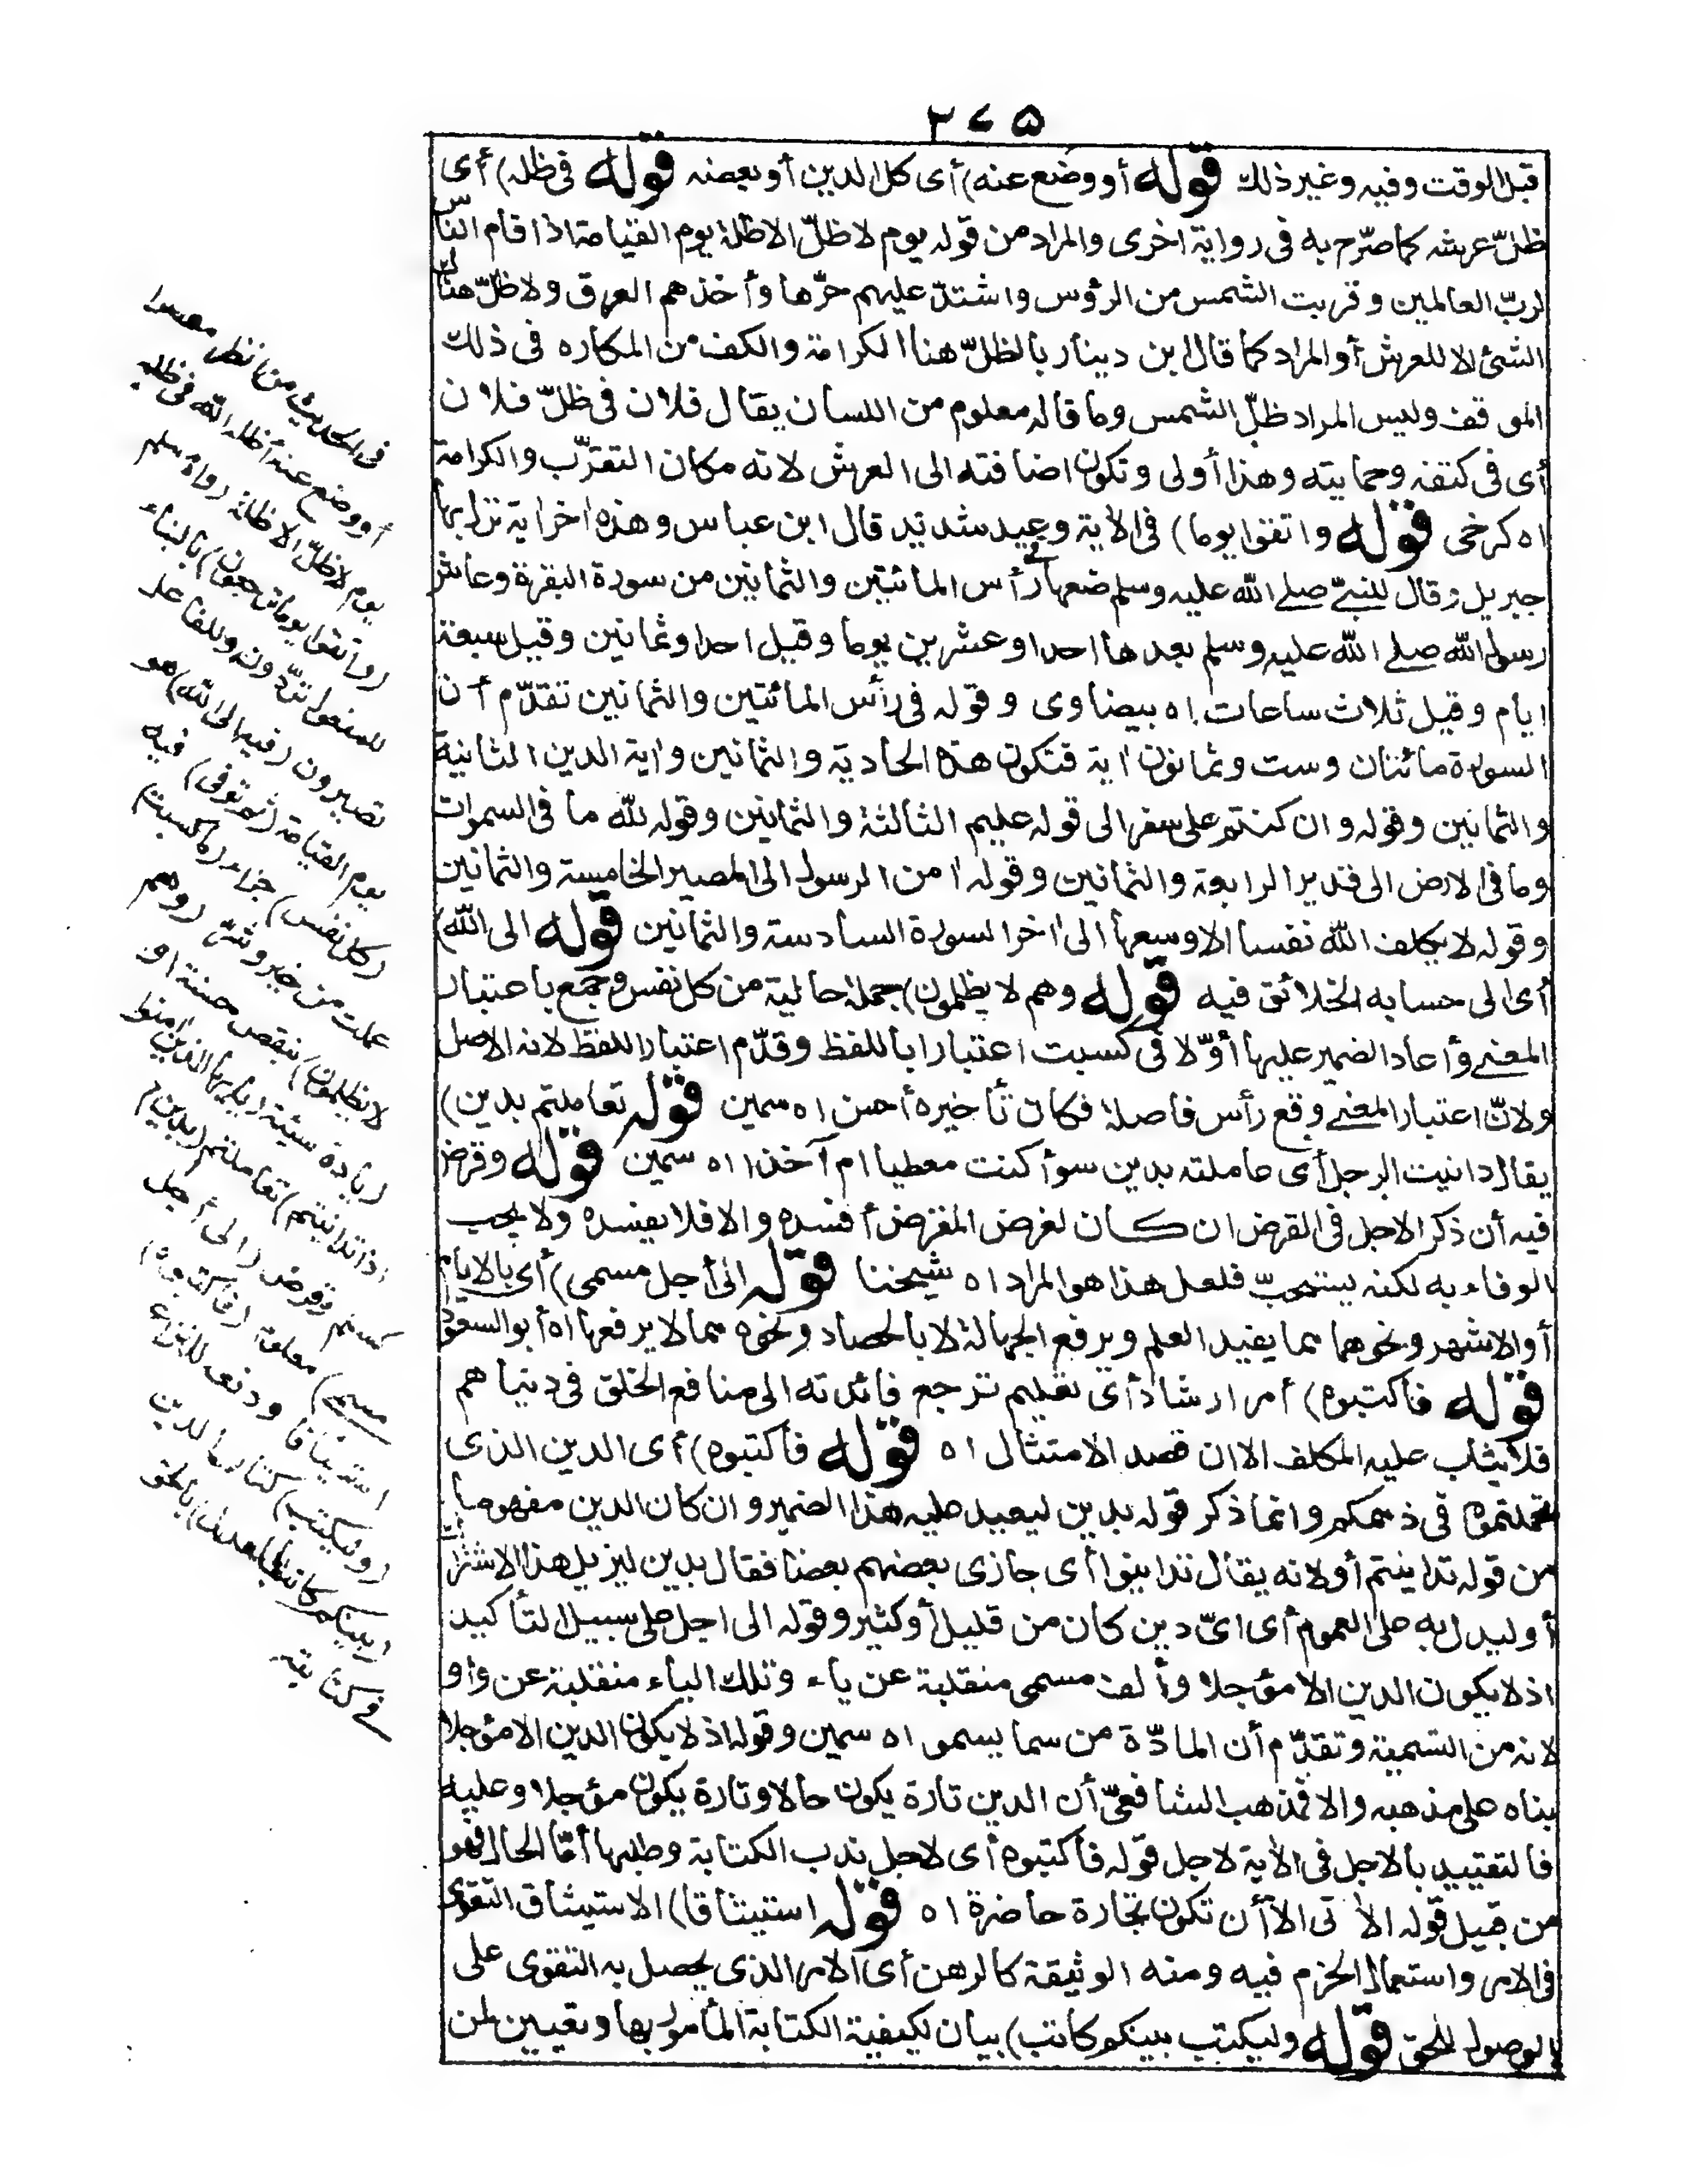 ٢٧٥
قبل الوقت وفيه وغير ذلك قوله أو وضع عنه) أى كل الدين أو بعضه قوله فى ظله) أى
ظلّ عرشه كما صرّح به فى رواية اخرى والمراد من قوله يوم لا ظلّ الا ظله يوم القيامة اذا قام الناس
لربّ العالمين وقربت الشمس من الرؤس واشتدّ عليهم حرّها وأخذهم العرق ولا ظلّ هناك
لشئ الا للعرش أو المراد كما قال ابن دينار بالظلّ هنا الكرامة والكف من المكاره فى ذلك
الموقف وليس المراد ظلّ الشمس وما قاله معلوم من اللسان يقال فلان فى ظلّ فلان
أى فى كنفه وحمايته وهذا أولى وتكون اضافته الى العرش لانه مكان التقرّب والكرامة
اه كرخى قوله واتقوا يوما) فى الاية وعيد شديد قال ابن عباس وهذه اخر اية نزل بها
جبريل وقال للنبىّ صلى الله عليه وسلم ضعها فى رأس المائتين والثمانين من سورة البقرة وعاش
رسول الله صلى الله عليه وسلم بعدها احدا وعشرين يوما وقيل احدا وثمانين وقيل سبعة
ايام وقيل ثلاث ساعات اه بيضاوى وقوله فى رأس المائتين والثمانين تقدّم أن
السورة مائتان وست وثمانون اية فتكون هذه الحادية والثمانين واية الدين الثانية
والثمانين وقوله وان كنتم على سفر الى قوله عليم الثالثة والثمانين وقوله لله ما فى السموات
وما فى الارض الى قدير الرابعة والثمانين وقوله امن الرسول الى المصير الخامسة والثمانين
وقوله لا يكلف الله نفسا الا وسعها الى اخر السورة السادسة والثمانين قوله الى الله)
أى الى حسابه الخلائق فيه قوله وهم لا يظلمون) جملة حالية من كل نفس وجمع باعتبار
المعنى وأعاد الضمير عليها أوّلا فى كسبت اعتبارا باللفظ وقدّم اعتبار اللفظ لانه الاصل
ولانّ اعتبار المعنى وقع رأس فاصلة فكان تأخيره أحسن اه سمين قوله تعاملتم بدين)
يقال داينت الرجل أى عاملته بدين سوأ كنت معطيا ام آخذا اه سمين قوله وقرض
فيه أن ذكر الاجل فى القرض ان كان لغرض المقرض أفسده والا فلا يفسده ولا يجب
الوفاء به لكنه يستحبّ فلعل هذا هو المراد اه شيخنا قوله الى أجل مسمى) أى بالايام
أو الاشهر ونحوهما مما يفيد العلم ويرفع الجهالة لا بالحصاد ونحوه مما لا يرفعها اه أبو السعود
قوله فاكتبوه) أمر ارشاد أى تعليم ترجع فائدته الى منافع الخلق فى دنياهم
فلا يثاب عليه المكلف الا ان قصد الامتثال اه قوله فاكتبوه) أى الدين الذى
تحملتموه فى ذممكم وانما ذكر قوله بدين ليعيد عليه هذا الضمير وان كان الدين مفهوما
من قوله تداينتم أو لانه يقال تداينوا أى جازى بعضهم بعضا فقال بدين ليزيل هذا الاشتراك
أو ليدل به على العموم أى اىّ دين كان من قليل أو كثير وقوله الى اجل على سبيل التأكيد
اذ لا يكون الدين الا مؤجلا وألف مسمى منقلبة عن ياء وتلك الياء منقلبة عن واو
لانه من التسمية وتقدّم أن المادّة من سما يسمو اه سمين وقوله اذ لا يكون الدين الا مؤجلا
بناه على مذهبه والا فمذهب الشافعىّ أن الدين تارة يكون حالا وتارة يكون مؤجلا وعليه
فالتقييد بالاجل فى الاية لاجل قوله فاكتبوه أى لاجل ندب الكتابة وطلبها أمّا الحال فهو
من قبيل قوله الاتى الا أن تكون تجارة حاضرة اه قوله استيثاقا) الاستيثاق التقوى
فى الامر واستعمال الحزم فيه ومنه الوثيقة كالرهن أى الامر الذى يحصل به التقوى على
الوصول للحق قوله وليكتب بينكم كاتب) بيان لكيفية الكتابة المأمور بها وتعيين لمن
فى الحديث من انظر معسرا
أو وضع عنه أظله الله فى ظله
يوم لا ظلّ الا ظله رواه مسلم
(واتقوا يوما ترجعون) بالبناء
للمفعول تردّون وللفاعل
تصيرون (فيه الى الله) هو
يوم القيامة (ثم توفى) فيه
(كل نفس) جزاء (ما كسبت)
عملت من خير وشرّ (وهم
لا يظلمون) بنقص حسنة او
زيادة سيئة (يايها الذين امنوا
اذا تداينتم) تعاملتم (بدين)
كسلم وقرض (الى أجل
مسمى) معلوم (فاكتبوه)
استيثاقا ودفعا للنزاع
(وليكتب) كتاب الدين
(بينكم كاتب بالعدل) بالحق
فى كتابته